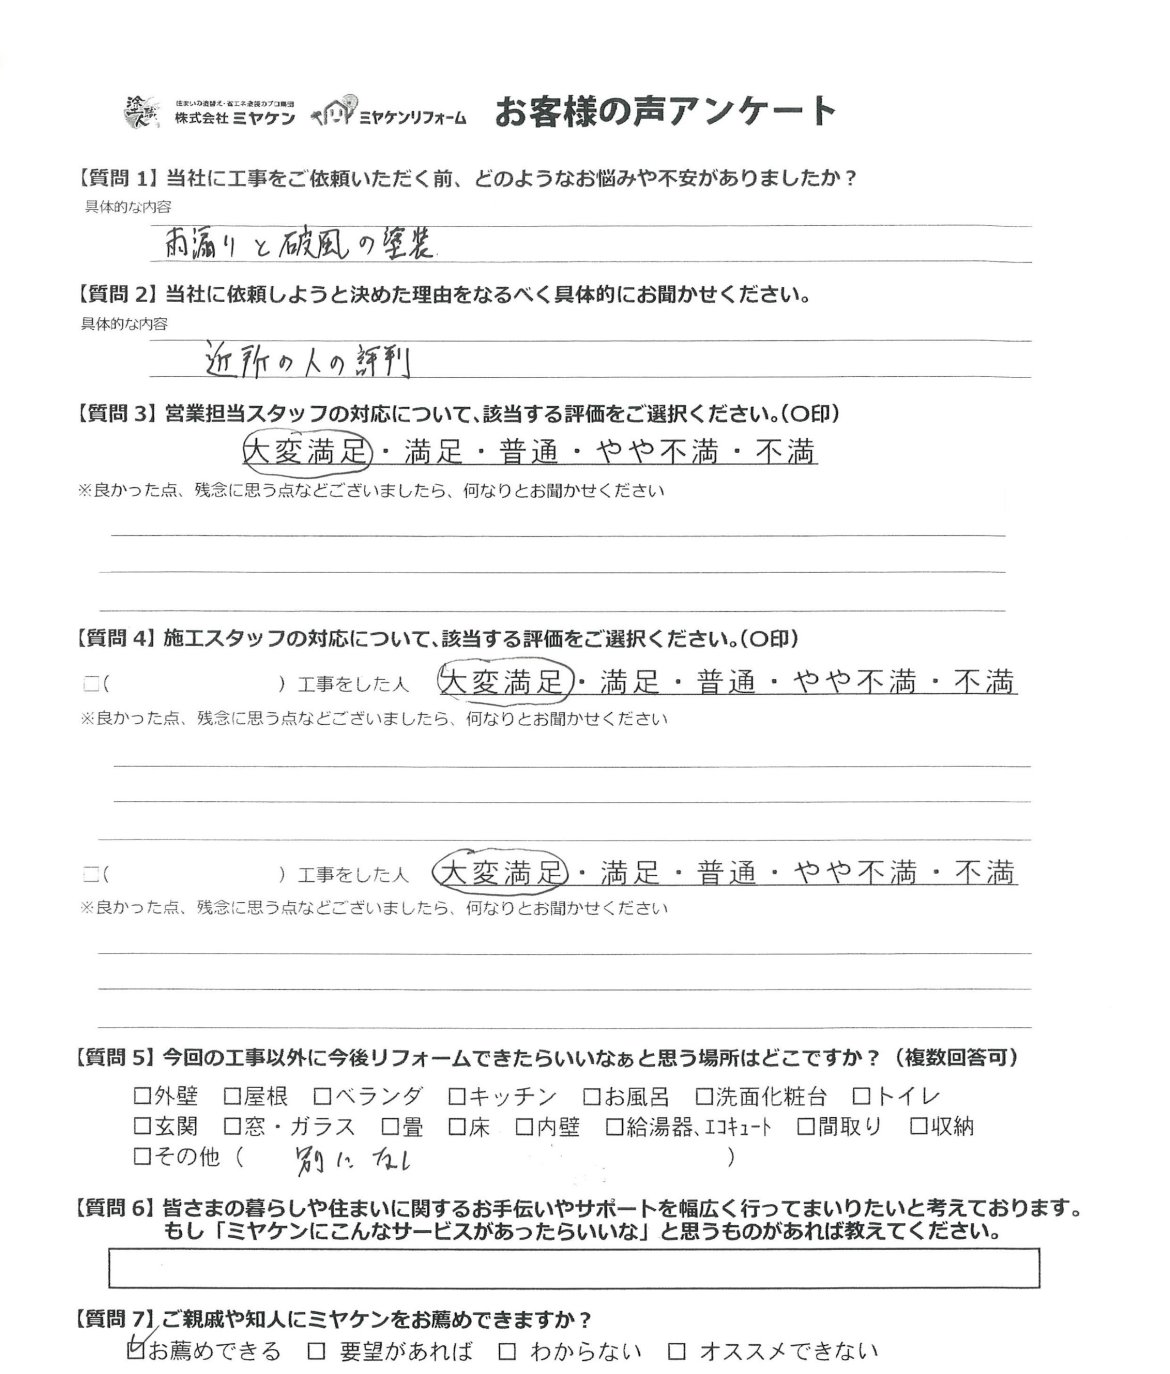 塗職人 住まいの塗替え・省エネ塗装のプロ集団
株式会社 ミヤケン ミヤケンリフォーム お客様の声アンケート
【質問 1】当社に工事をご依頼いただく前、どのようなお悩みや不安がありましたか？
具体的な内容
雨漏りと破風の塗装
【質問 2】当社に依頼しようと決めた理由をなるべく具体的にお聞かせください。
具体的な内容
近所の人の評判
【質問 3】営業担当スタッフの対応について、該当する評価をご選択ください。（〇印）
大変満足・満足・普通・やや不満・不満
※良かった点、残念に思う点などございましたら、何なりとお聞かせください
【質問 4】施工スタッフの対応について、該当する評価をご選択ください。（〇印）
□（ ）工事をした人 大変満足・満足・普通・やや不満・不満
※良かった点、残念に思う点などございましたら、何なりとお聞かせください
□（ ）工事をした人 大変満足・満足・普通・やや不満・不満
※良かった点、残念に思う点などございましたら、何なりとお聞かせください
【質問 5】今回の工事以外に今後リフォームできたらいいなぁと思う場所はどこですか？（複数回答可）
□外壁 □屋根 □ベランダ □キッチン □お風呂 □洗面化粧台 □トイレ
□玄関 □窓・ガラス □畳 □床 □内壁 □給湯器、ｴｺｷｭｰﾄ □間取り □収納
□その他（ 別になし ）
【質問 6】皆さまの暮らしや住まいに関するお手伝いやサポートを幅広く行ってまいりたいと考えております。
もし「ミヤケンにこんなサービスがあったらいいな」と思うものがあれば教えてください。
【質問 7】ご親戚や知人にミヤケンをお薦めできますか？
☑お薦めできる □ 要望があれば □ わからない □ オススメできない